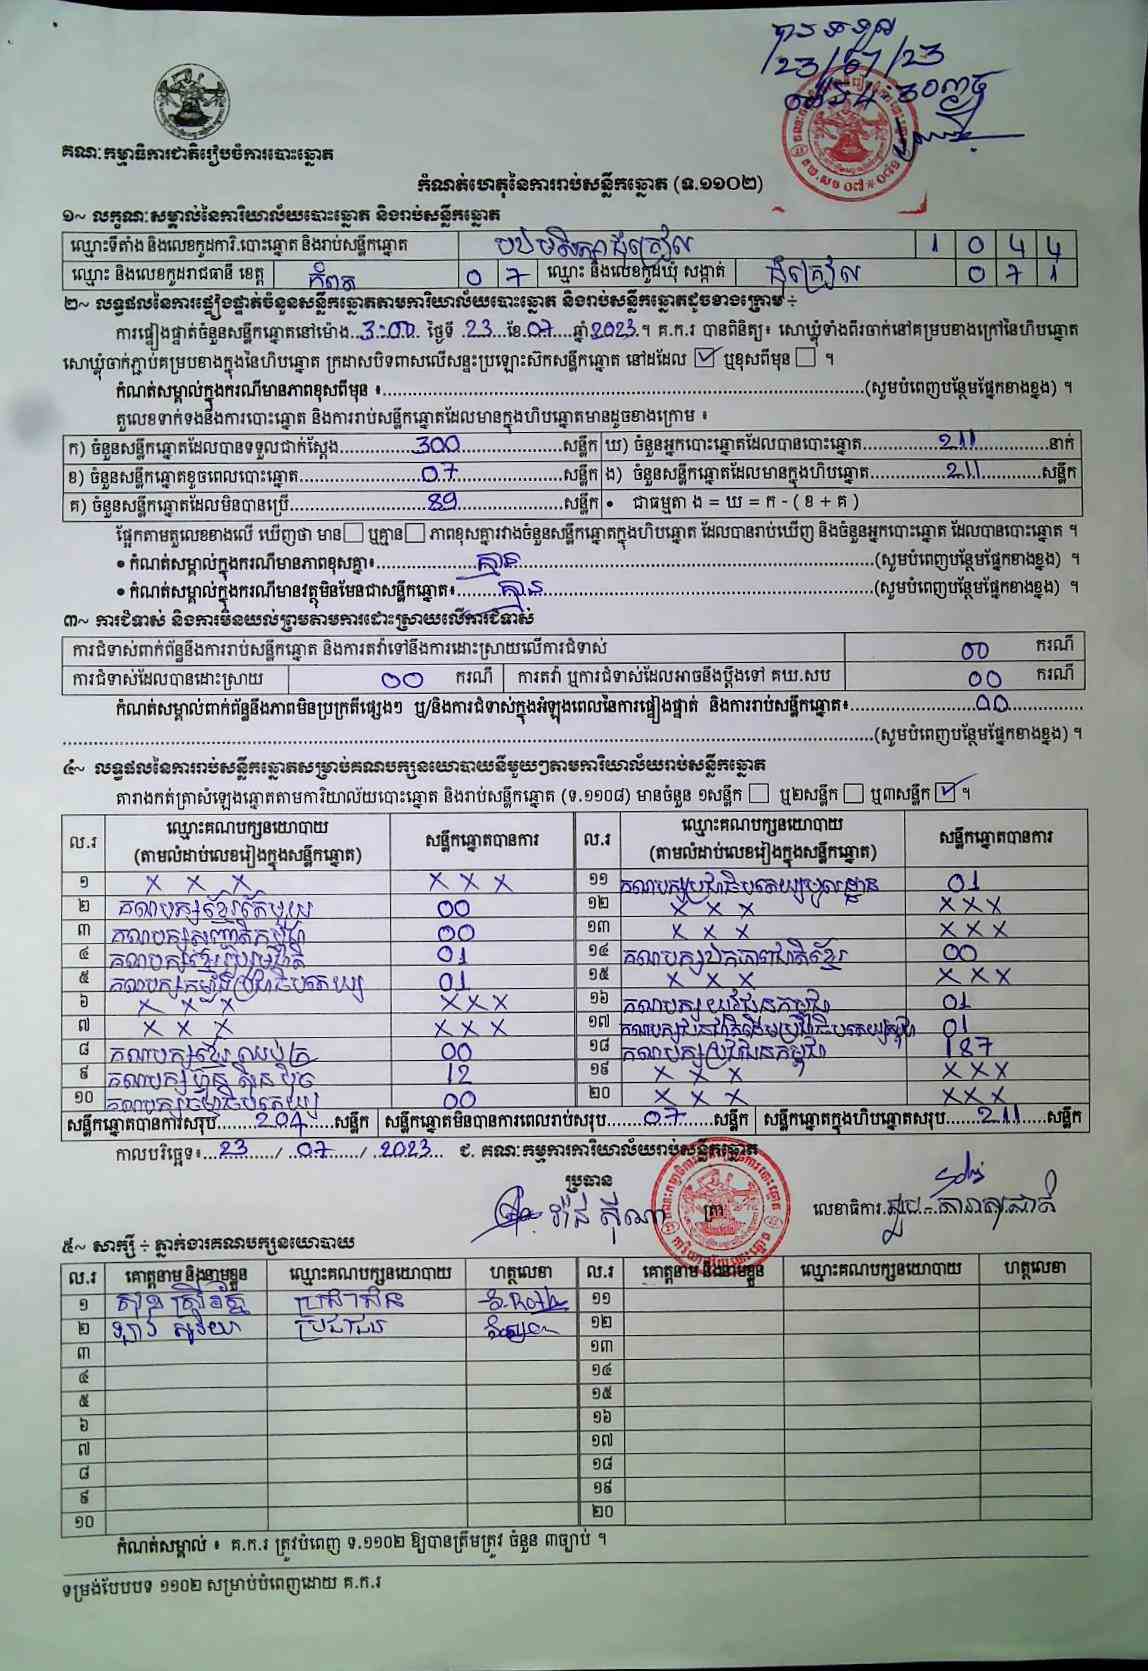 បានទទួល
23/07/23
ម៉ោង 4:30នាទី
គណៈកម្មាធិការជាតិរៀបចំការបោះឆ្នោត
កំណត់ហេតុនៃការរាប់សន្លឹកឆ្នោត (ទ.១១០២)
១~ លក្ខណៈសម្គាល់នៃការិយាល័យបោះឆ្នោត និងរាប់សន្លឹកឆ្នោត
ឈ្មោះទីតាំង និងលេខកូដការិ.បោះឆ្នោត និងរាប់សន្លឹកឆ្នោត 1 0 4 4
ឈ្មោះ និងលេខកូដរាជធានី ខេត្ត កំពត 0 7 ឈ្មោះ និងលេខកូដឃុំ សង្កាត់ ជុំគ្រៀល 0 7 1
២~ លទ្ធផលនៃការផ្ទៀងផ្ទាត់ចំនួនសន្លឹកឆ្នោតតាមការិយាល័យបោះឆ្នោត និងរាប់សន្លឹកឆ្នោតដូចខាងក្រោម ÷
ការផ្ទៀងផ្ទាត់ចំនួនសន្លឹកឆ្នោតនៅម៉ោង 3:00 ថ្ងៃទី 23 ខែ 07 ឆ្នាំ 2023 ។ គ.ក.រ បានពិនិត្យ៖ សោឃ្លុំទាំងពីរចាក់នៅគម្របខាងក្រៅនៃហិបឆ្នោត
សោឃ្លុំចាក់ភ្ជាប់គម្របខាងក្នុងនៃហិបឆ្នោត ក្រដាសបិទពាសលើសន្ទះប្រឡោះស៊កសន្លឹកឆ្នោត នៅដដែល ☑ ឬខុសពីមុន ☐ ។
កំណត់សម្គាល់ក្នុងករណីមានភាពខុសពីមុន ៖ (សូមបំពេញបន្ថែមផ្នែកខាងខ្នង) ។
តួលេខទាក់ទងនឹងការបោះឆ្នោត និងការរាប់សន្លឹកឆ្នោតដែលមានក្នុងហិបឆ្នោតមានដូចខាងក្រោម ៖
ក) ចំនួនសន្លឹកឆ្នោតដែលបានទទួលជាក់ស្តែង 300 សន្លឹក ឃ) ចំនួនអ្នកបោះឆ្នោតដែលបានបោះឆ្នោត 211 នាក់
ខ) ចំនួនសន្លឹកឆ្នោតខូចពេលបោះឆ្នោត 07 សន្លឹក ង) ចំនួនសន្លឹកឆ្នោតដែលមានក្នុងហិបឆ្នោត 211 សន្លឹក
គ) ចំនួនសន្លឹកឆ្នោតដែលមិនបានប្រើ 89 សន្លឹក • ជាធម្មតា ង = ឃ = ក - ( ខ + គ )
ផ្អែកតាមតួលេខខាងលើ ឃើញថា មាន ☐ ឬគ្មាន ☐ ភាពខុសគ្នារវាងចំនួនសន្លឹកឆ្នោតក្នុងហិបឆ្នោត ដែលបានរាប់ឃើញ និងចំនួនអ្នកបោះឆ្នោត ដែលបានបោះឆ្នោត ។
• កំណត់សម្គាល់ក្នុងករណីមានភាពខុសគ្នា៖ គ្មាន (សូមបំពេញបន្ថែមផ្នែកខាងខ្នង) ។
• កំណត់សម្គាល់ក្នុងករណីមានវត្ថុមិនមែនជាសន្លឹកឆ្នោត៖ គ្មាន (សូមបំពេញបន្ថែមផ្នែកខាងខ្នង) ។
៣~ ការជំទាស់ និងការមិនយល់ព្រមតាមការដោះស្រាយលើការជំទាស់
ការជំទាស់ពាក់ព័ន្ធនឹងការរាប់សន្លឹកឆ្នោត និងការតវ៉ាទៅនឹងការដោះស្រាយលើការជំទាស់ 00 ករណី
ការជំទាស់ដែលបានដោះស្រាយ 00 ករណី ការតវ៉ា ឬការជំទាស់ដែលអាចនឹងប្តឹងទៅ គឃ.សប 00 ករណី
កំណត់សម្គាល់ពាក់ព័ន្ធនឹងភាពមិនប្រក្រតីផ្សេងៗ ឬ/និងការជំទាស់ក្នុងអំឡុងពេលនៃការផ្ទៀងផ្ទាត់ និងការរាប់សន្លឹកឆ្នោត៖ 00
(សូមបំពេញបន្ថែមផ្នែកខាងខ្នង) ។
៤~ លទ្ធផលនៃការរាប់សន្លឹកឆ្នោតសម្រាប់គណបក្សនយោបាយនីមួយៗតាមការិយាល័យរាប់សន្លឹកឆ្នោត
តារាងកត់ត្រាសំឡេងឆ្នោតតាមការិយាល័យបោះឆ្នោត និងរាប់សន្លឹកឆ្នោត (ទ.១១០៨) មានចំនួន ១សន្លឹក ☐ ឬ២សន្លឹក ☐ ឬ៣សន្លឹក ☑ ។
ល.រ ឈ្មោះគណបក្សនយោបាយ (តាមលំដាប់លេខរៀងក្នុងសន្លឹកឆ្នោត) សន្លឹកឆ្នោតបានការ ល.រ ឈ្មោះគណបក្សនយោបាយ (តាមលំដាប់លេខរៀងក្នុងសន្លឹកឆ្នោត) សន្លឹកឆ្នោតបានការ
១ x x x x x x ១១ គណបក្សប្រជាធិបតេយ្យមូលដ្ឋាន 01
២ គណបក្សខ្មែរតែមួយ 00 ១២ x x x x x x
៣ គណបក្សសញ្ជាតិកម្ពុជា 00 ១៣ x x x x x x
៤ គណបក្សខ្មែររួបរួមជាតិ 01 ១៤ គណបក្សឯកភាពជាតិខ្មែរ 00
៥ គណបក្សកម្លាំងប្រជាធិបតេយ្យ 01 ១៥ x x x x x x
៦ x x x x x x ១៦ គណបក្សយុវជនកម្ពុជា 01
៧ x x x x x x ១៧ គណបក្សជនជាតិដើមប្រជាធិបតេយ្យកម្ពុជា 01
៨ គណបក្សខ្មែរឈប់ក្រ 00 ១៨ គណបក្សប្រជាជនកម្ពុជា 187
៩ គណបក្សហ្វ៊ុនស៊ិនប៉ិច 12 ១៩ x x x x x x
១០ គណបក្សធម្មាធិបតេយ្យ 00 ២០ x x x x x x
សន្លឹកឆ្នោតបានការសរុប 204 សន្លឹក សន្លឹកឆ្នោតមិនបានការពេលរាប់សរុប 07 សន្លឹក សន្លឹកឆ្នោតក្នុងហិបឆ្នោតសរុប 211 សន្លឹក
កាលបរិច្ឆេទ៖ 23 / 07 / 2023 ជ. គណៈកម្មការការិយាល័យរាប់សន្លឹកឆ្នោត
ប្រធាន
ត្រា លេខាធិការ
៥~ សាក្សី ÷ ភ្នាក់ងារគណបក្សនយោបាយ
ល.រ គោត្តនាម និងនាមខ្លួន ឈ្មោះគណបក្សនយោបាយ ហត្ថលេខា ល.រ គោត្តនាម និងនាមខ្លួន ឈ្មោះគណបក្សនយោបាយ ហត្ថលេខា
១ ប្រជាជន ១១
២ ប្រជាជន ១២
៣ ១៣
៤ ១៤
៥ ១៥
៦ ១៦
៧ ១៧
៨ ១៨
៩ ១៩
១០ ២០
កំណត់សម្គាល់ ៖ គ.ក.រ ត្រូវបំពេញ ទ.១១០២ ឱ្យបានត្រឹមត្រូវ ចំនួន ៣ច្បាប់ ។
ទម្រង់បែបបទ ១១០២ សម្រាប់បំពេញដោយ គ.ក.រ